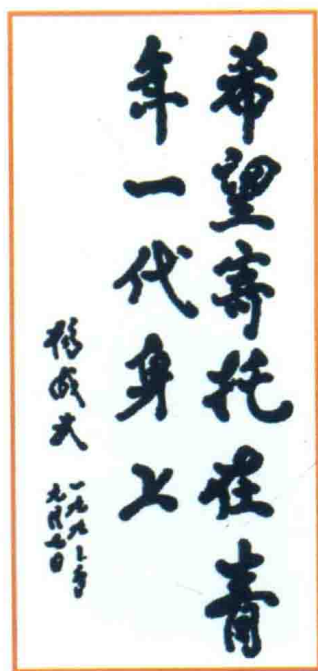 希望寄托在青
年一代身上
杨成武
一九九二年
九月七日